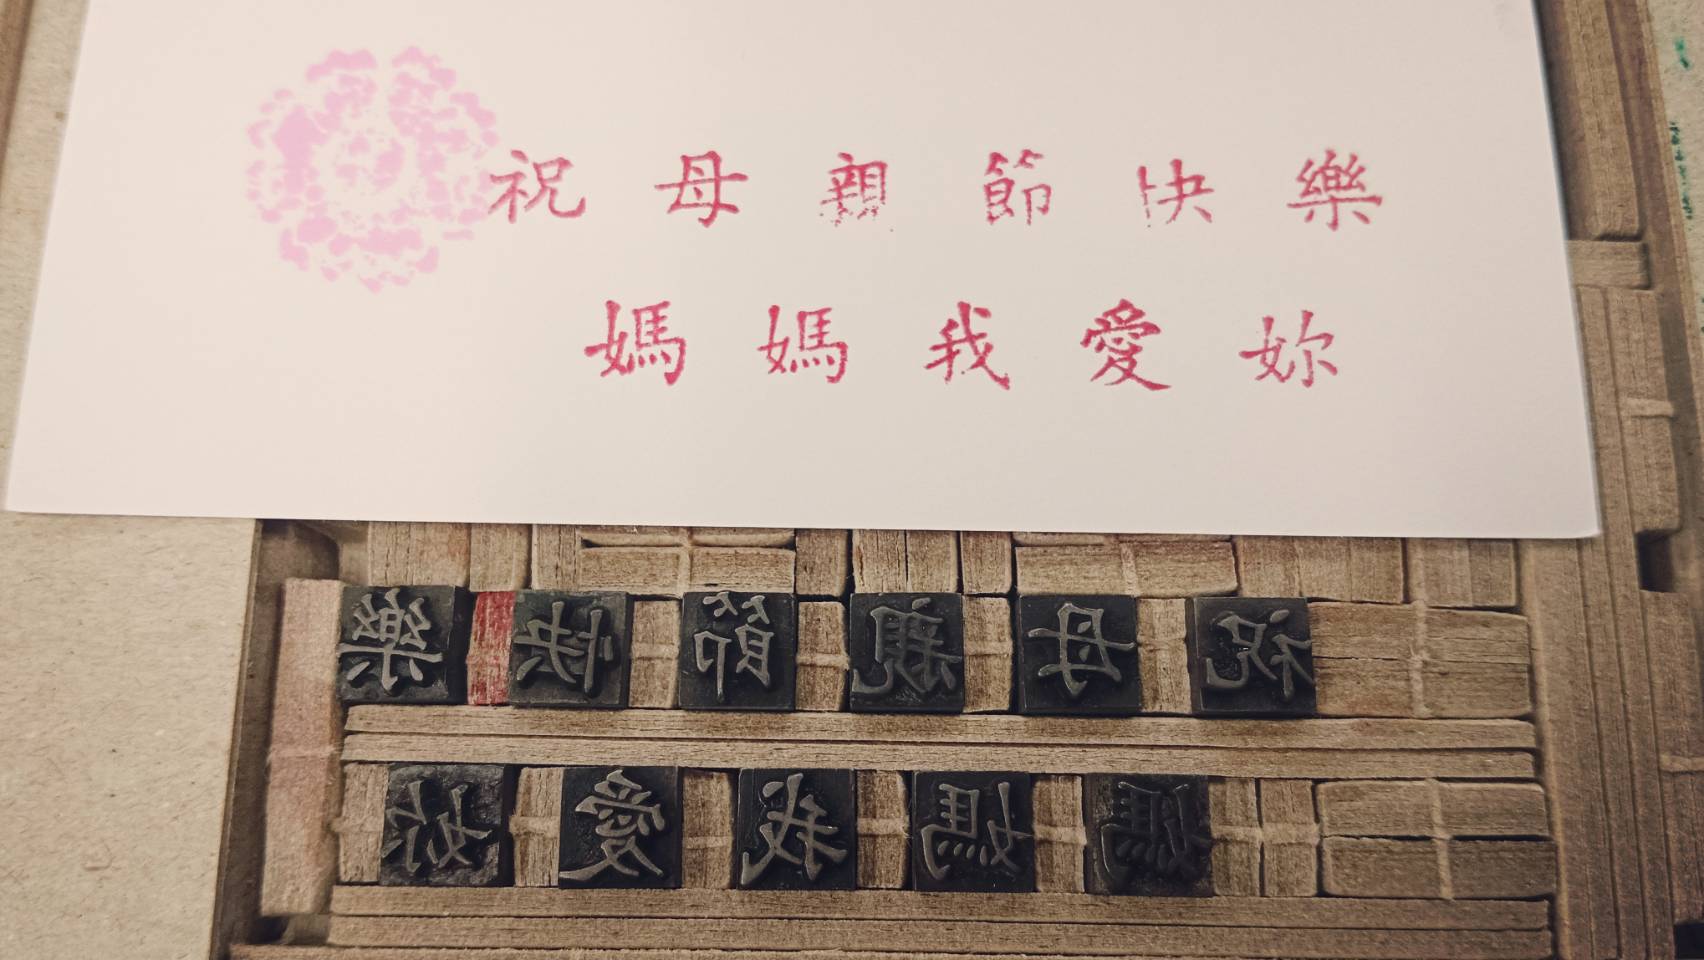 祝母親節快樂
媽媽我愛妳
樂快節親母祝
妳愛我媽媽